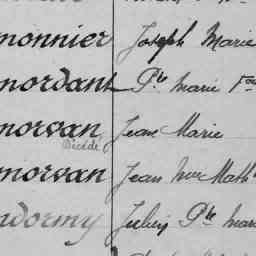 monnier Joseph Marie
mordant Pre marie Fois
morvan Jean Marie
Décédé
morvan Jean Mie Math
adormy Julien Pre mari